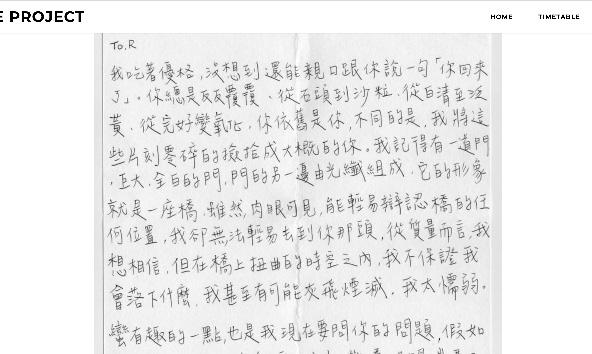 E PROJECT
HOME
TIMETABLE
To.R
我吃著優格，沒想到還能親口跟你說一句「你回來
了」。你總是反反覆覆，從石頭到沙粒，從白清至泛
黃，從完好變氧化，你依舊是你，不同的是，我將這
些片刻零碎的撿拾成大概的你。我記得有一道門
，巨大，全白的門，門的另一邊由光纖組成，它的形象
就是一座橋，雖然肉眼可見，能輕易辯認橋的任
何位置，我卻無法輕易去到你那頭，從質量而言，我
想相信，但在橋上扭曲的時空之內，我不保證我
會落下什麼，我甚至有可能灰飛煙滅，我太懦弱。
蠻有趣的一點，也是我現在要問你的問題，假如